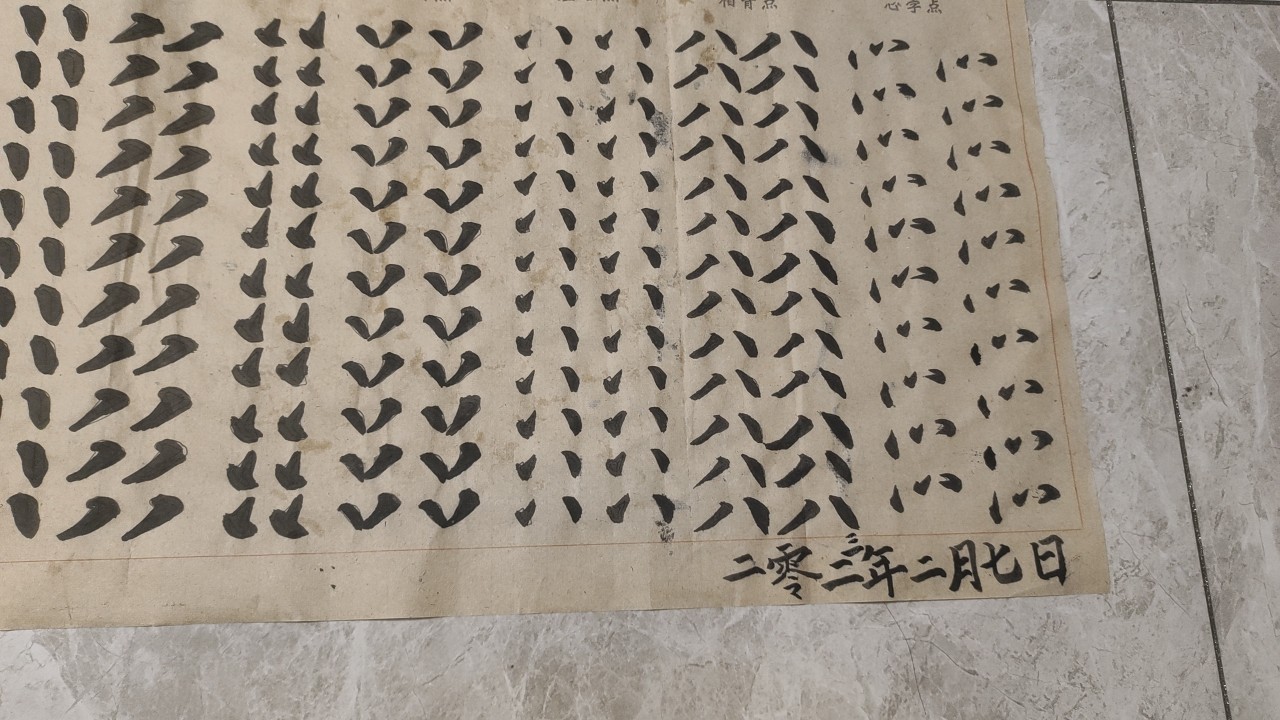 相背点 心字点
二零二三年二月七日